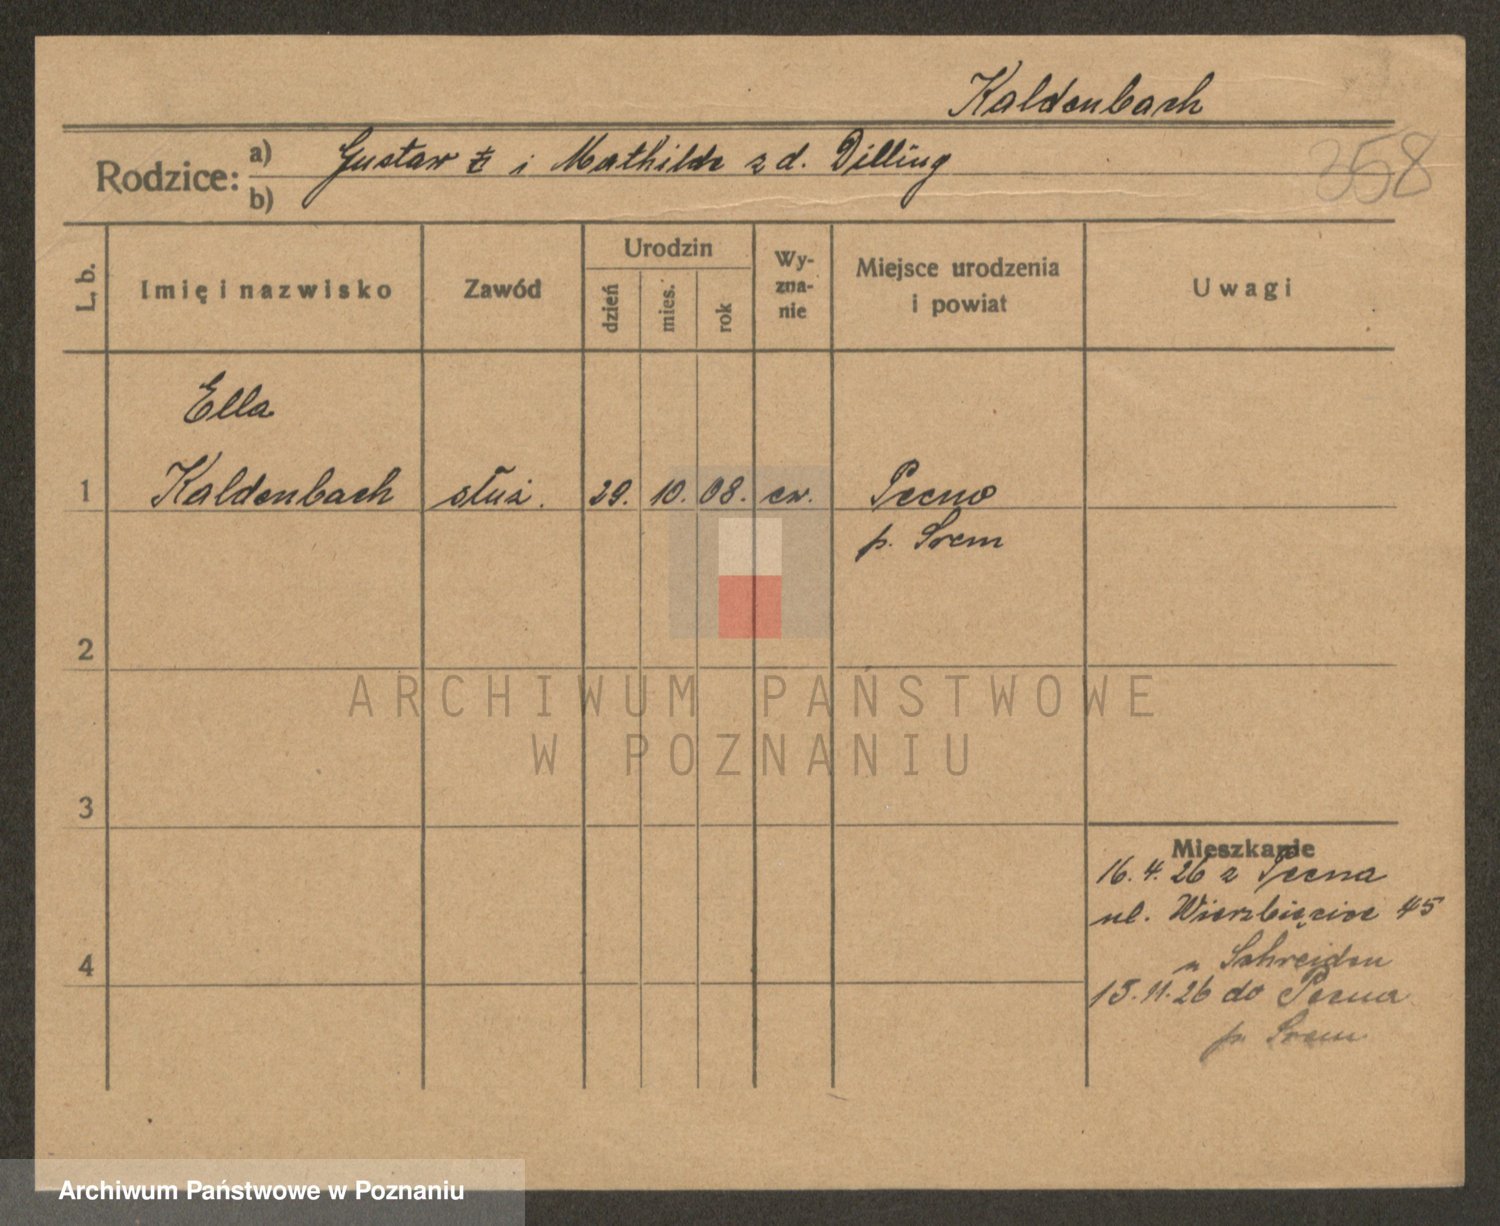 Kaldenbach
Rodzice:
a) Gustaw ż i Mathilde z d. Dilling
b)
358
L. b.
Imię i nazwisko
Zawód
Urodzin
dzień
mies.
rok
Wy-
zna-
nie
Miejsce urodzenia
i powiat
Uwagi
Ella
1 Kaldenbach służ. 29. 10. 08. ew. Pecno
p. Śrem
2
ARCHIWUM PAŃSTWOWE
W POZNANIU
3
Mieszkanie
16. 4. 26 z Pecna
ul. Wierzbięcice 45
4
15. 11. 26 do Pecna
p. Śrem
Archiwum Państwowe w Poznaniu